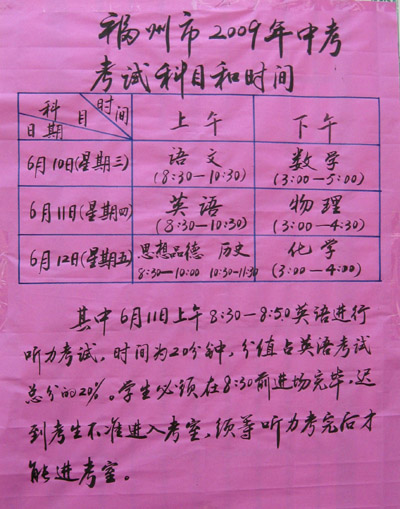 福州市2009年中考
考试科目和时间
科目 时间
日期
上午
下午
6月10日(星期三)
语文
(8:30—10:30)
数学
(3:00—5:00)
6月11日(星期四)
英语
(8:30—10:30)
物理
(3:00—4:30)
6月12日(星期五)
思想品德 历史
8:30—10:00 10:30-11:30
化学
(3:00—4:00)
其中6月11日上午8:30—8:50英语进行
听力考试,时间为20分钟,分值占英语考试
总分的20%。学生必须在8:30前进场完毕,迟
到考生不准进入考室,须等听力考完后才
能进考室。